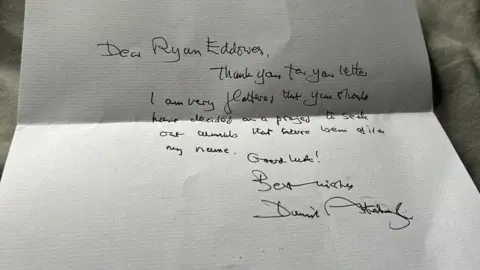 Dear Ryan Eddowes,
Thank you for your letter
I am very flattered that you should
have decided on a project to seek
out animals that have been given
my name. Good luck!
Best wishes
David Attenborough